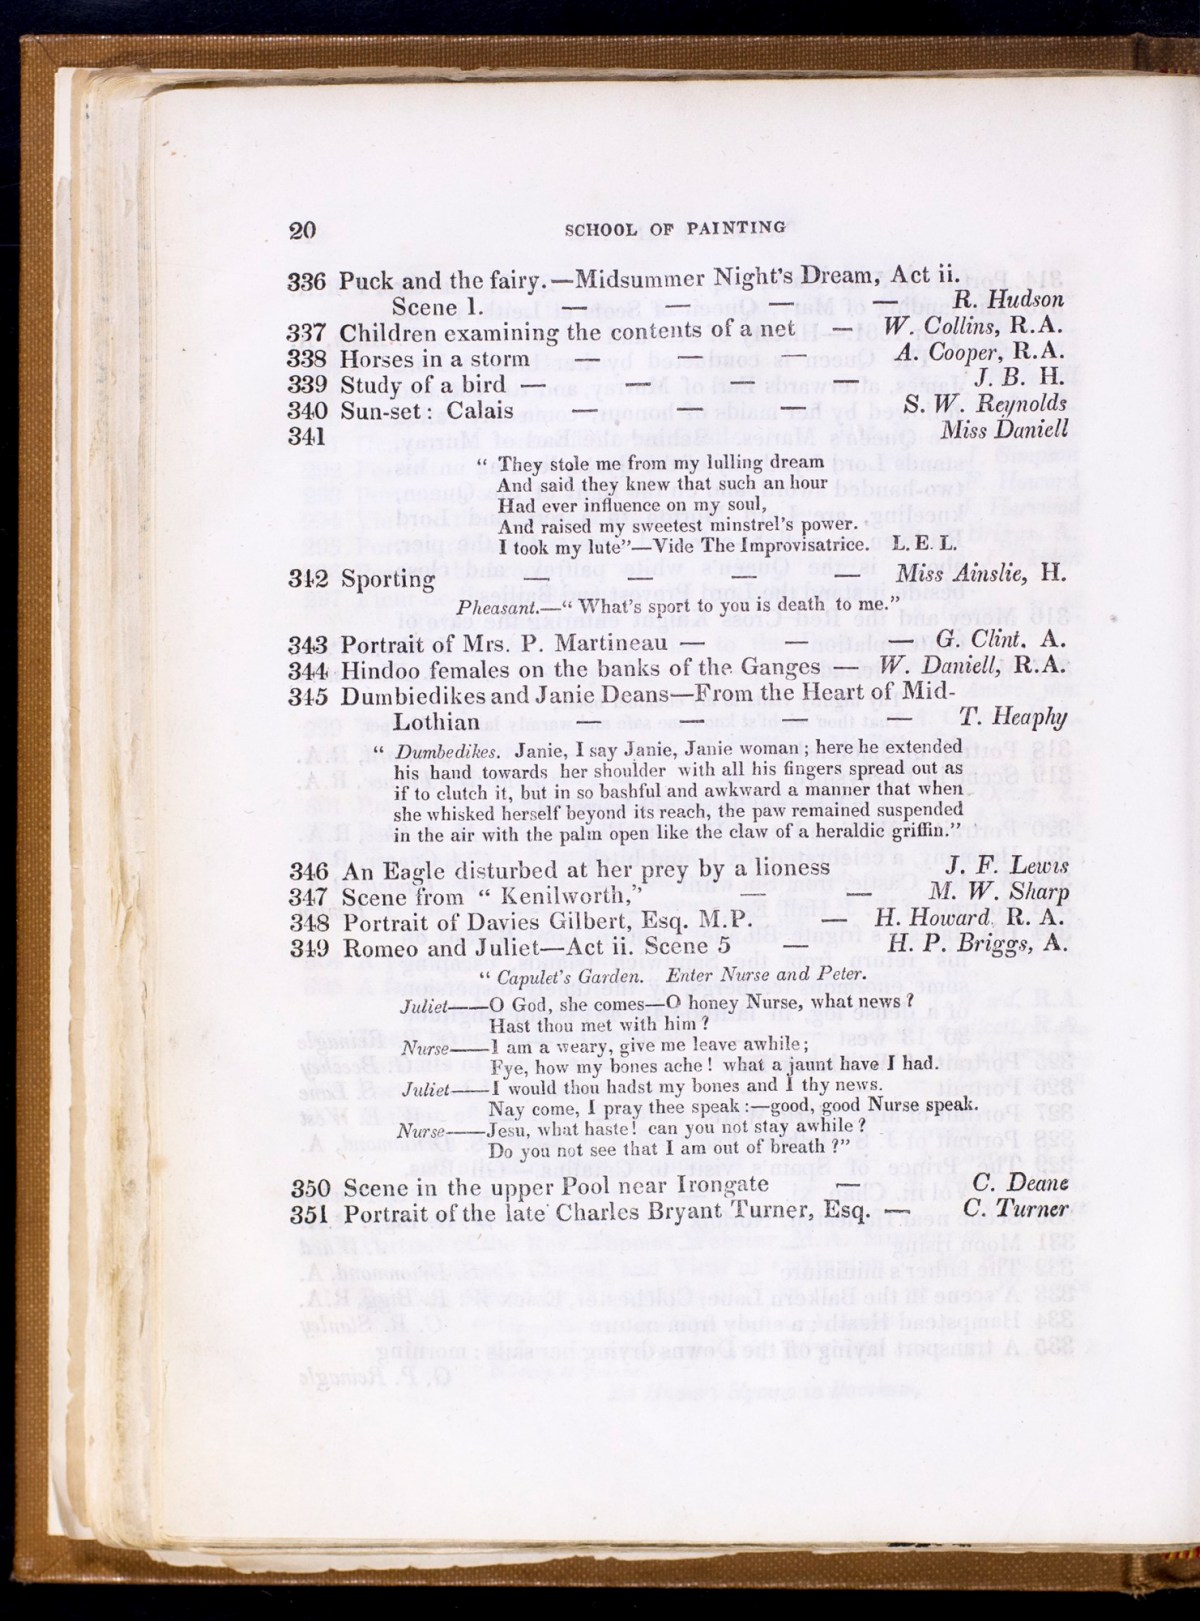 20 SCHOOL OF PAINTING
336 Puck and the fairy.—Midsummer Night's Dream, Act ii.
Scene 1. — — — — R. Hudson
337 Children examining the contents of a net — W. Collins, R.A.
338 Horses in a storm — — — A. Cooper, R.A.
339 Study of a bird — — — — J. B. H.
340 Sun-set: Calais — — — S. W. Reynolds
341 Miss Daniell
“ They stole me from my lulling dream
And said they knew that such an hour
Had ever influence on my soul,
And raised my sweetest minstrel's power.
I took my lute”—Vide The Improvisatrice. L. E. L.
342 Sporting — — — — Miss Ainslie, H.
Pheasant.—“ What's sport to you is death to me.”
343 Portrait of Mrs. P. Martineau — — — G. Clint. A.
344 Hindoo females on the banks of the Ganges — W. Daniell, R.A.
345 Dumbiedikes and Janie Deans—From the Heart of Mid-
Lothian — — — — T. Heaphy
“ Dumbedikes. Janie, I say Janie, Janie woman; here he extended
his hand towards her shoulder with all his fingers spread out as
if to clutch it, but in so bashful and awkward a manner that when
she whisked herself beyond its reach, the paw remained suspended
in the air with the palm open like the claw of a heraldic griffin.”
346 An Eagle disturbed at her prey by a lioness J. F. Lewis
347 Scene from “ Kenilworth,” — — M. W. Sharp
348 Portrait of Davies Gilbert, Esq. M.P. — H. Howard, R. A.
349 Romeo and Juliet—Act ii. Scene 5 — H. P. Briggs, A.
“ Capulet's Garden. Enter Nurse and Peter.
Juliet——O God, she comes—O honey Nurse, what news ?
Hast thou met with him ?
Nurse——I am a weary, give me leave awhile;
Fye, how my bones ache ! what a jaunt have I had.
Juliet——I would thou hadst my bones and I thy news.
Nay come, I pray thee speak:—good, good Nurse speak.
Nurse——Jesu, what haste! can you not stay awhile ?
Do you not see that I am out of breath ?”
350 Scene in the upper Pool near Irongate — C. Deane
351 Portrait of the late Charles Bryant Turner, Esq. — C. Turner